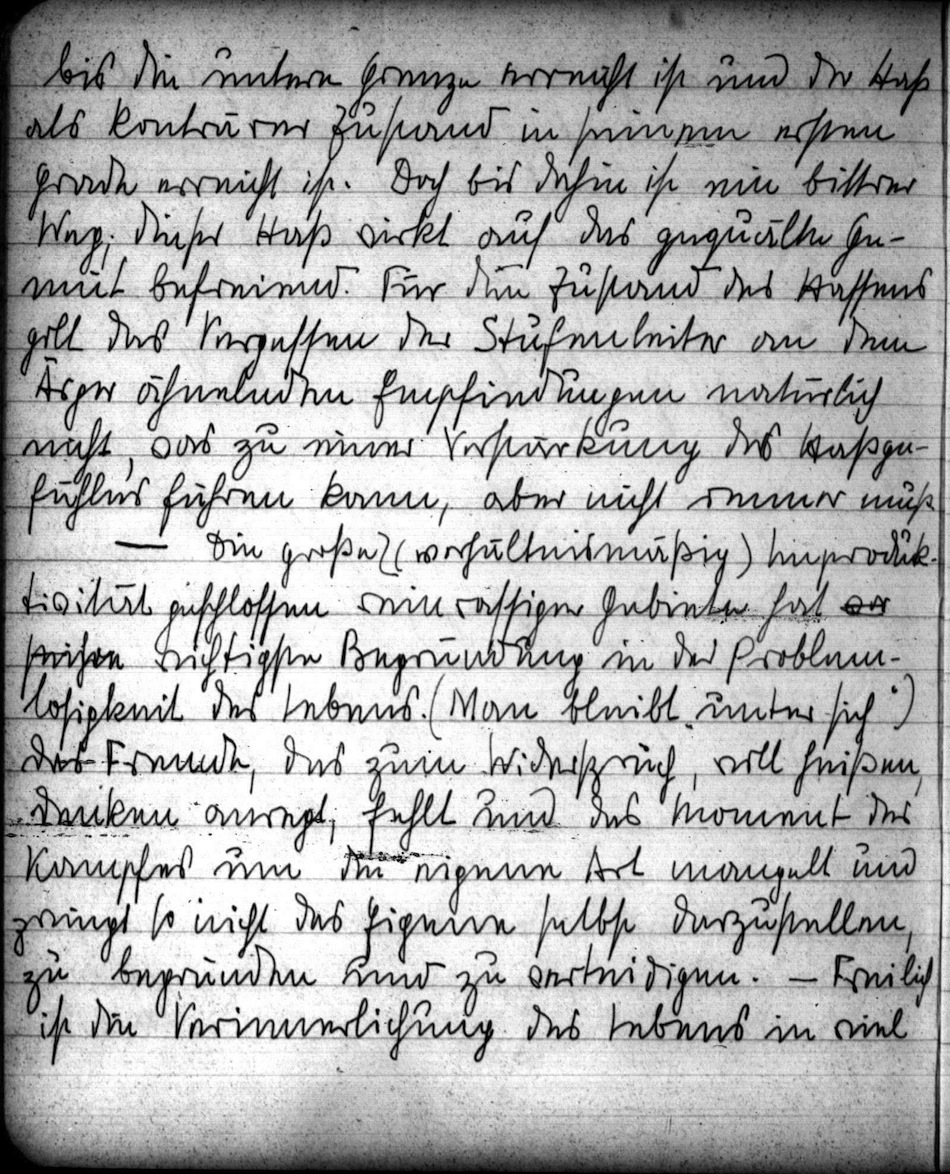 bis die untere Grenze erreicht ist und der Haß
als konträrer Zustand in seinem ersten
Grade erreicht ist. Doch bis dahin ist ein bittrer
Weg; dieser Haß wirkt auf das gequälte Ge-
müt befreiend. Für den Zustand des Hassens
gilt das Vergessen der Stufenleiter an dem
Ärger ähnelnden Empfindungen natürlich
nicht, was zu einer Verstärkung des Haßge-
fühles führen kann, aber nicht immer muß
— Die große (verhältnismäßig) Improduk-
tivität geschlossen reinrassiger Gebiete hat
wichtigste Begründung in der Problem-
losigkeit des Lebens. (Man bleibt „unter sich“)
das Fremde, das zum Widerspruch, will heißen,
denken anregt, fehlt und das Moment des
Kampfes um die eigene Art mangelt und
zwingt so nicht das Eigene selbst darzustellen,
zu begründen und zu verteidigen. — Freilich
ist die Verinnerlichung des Lebens in viel